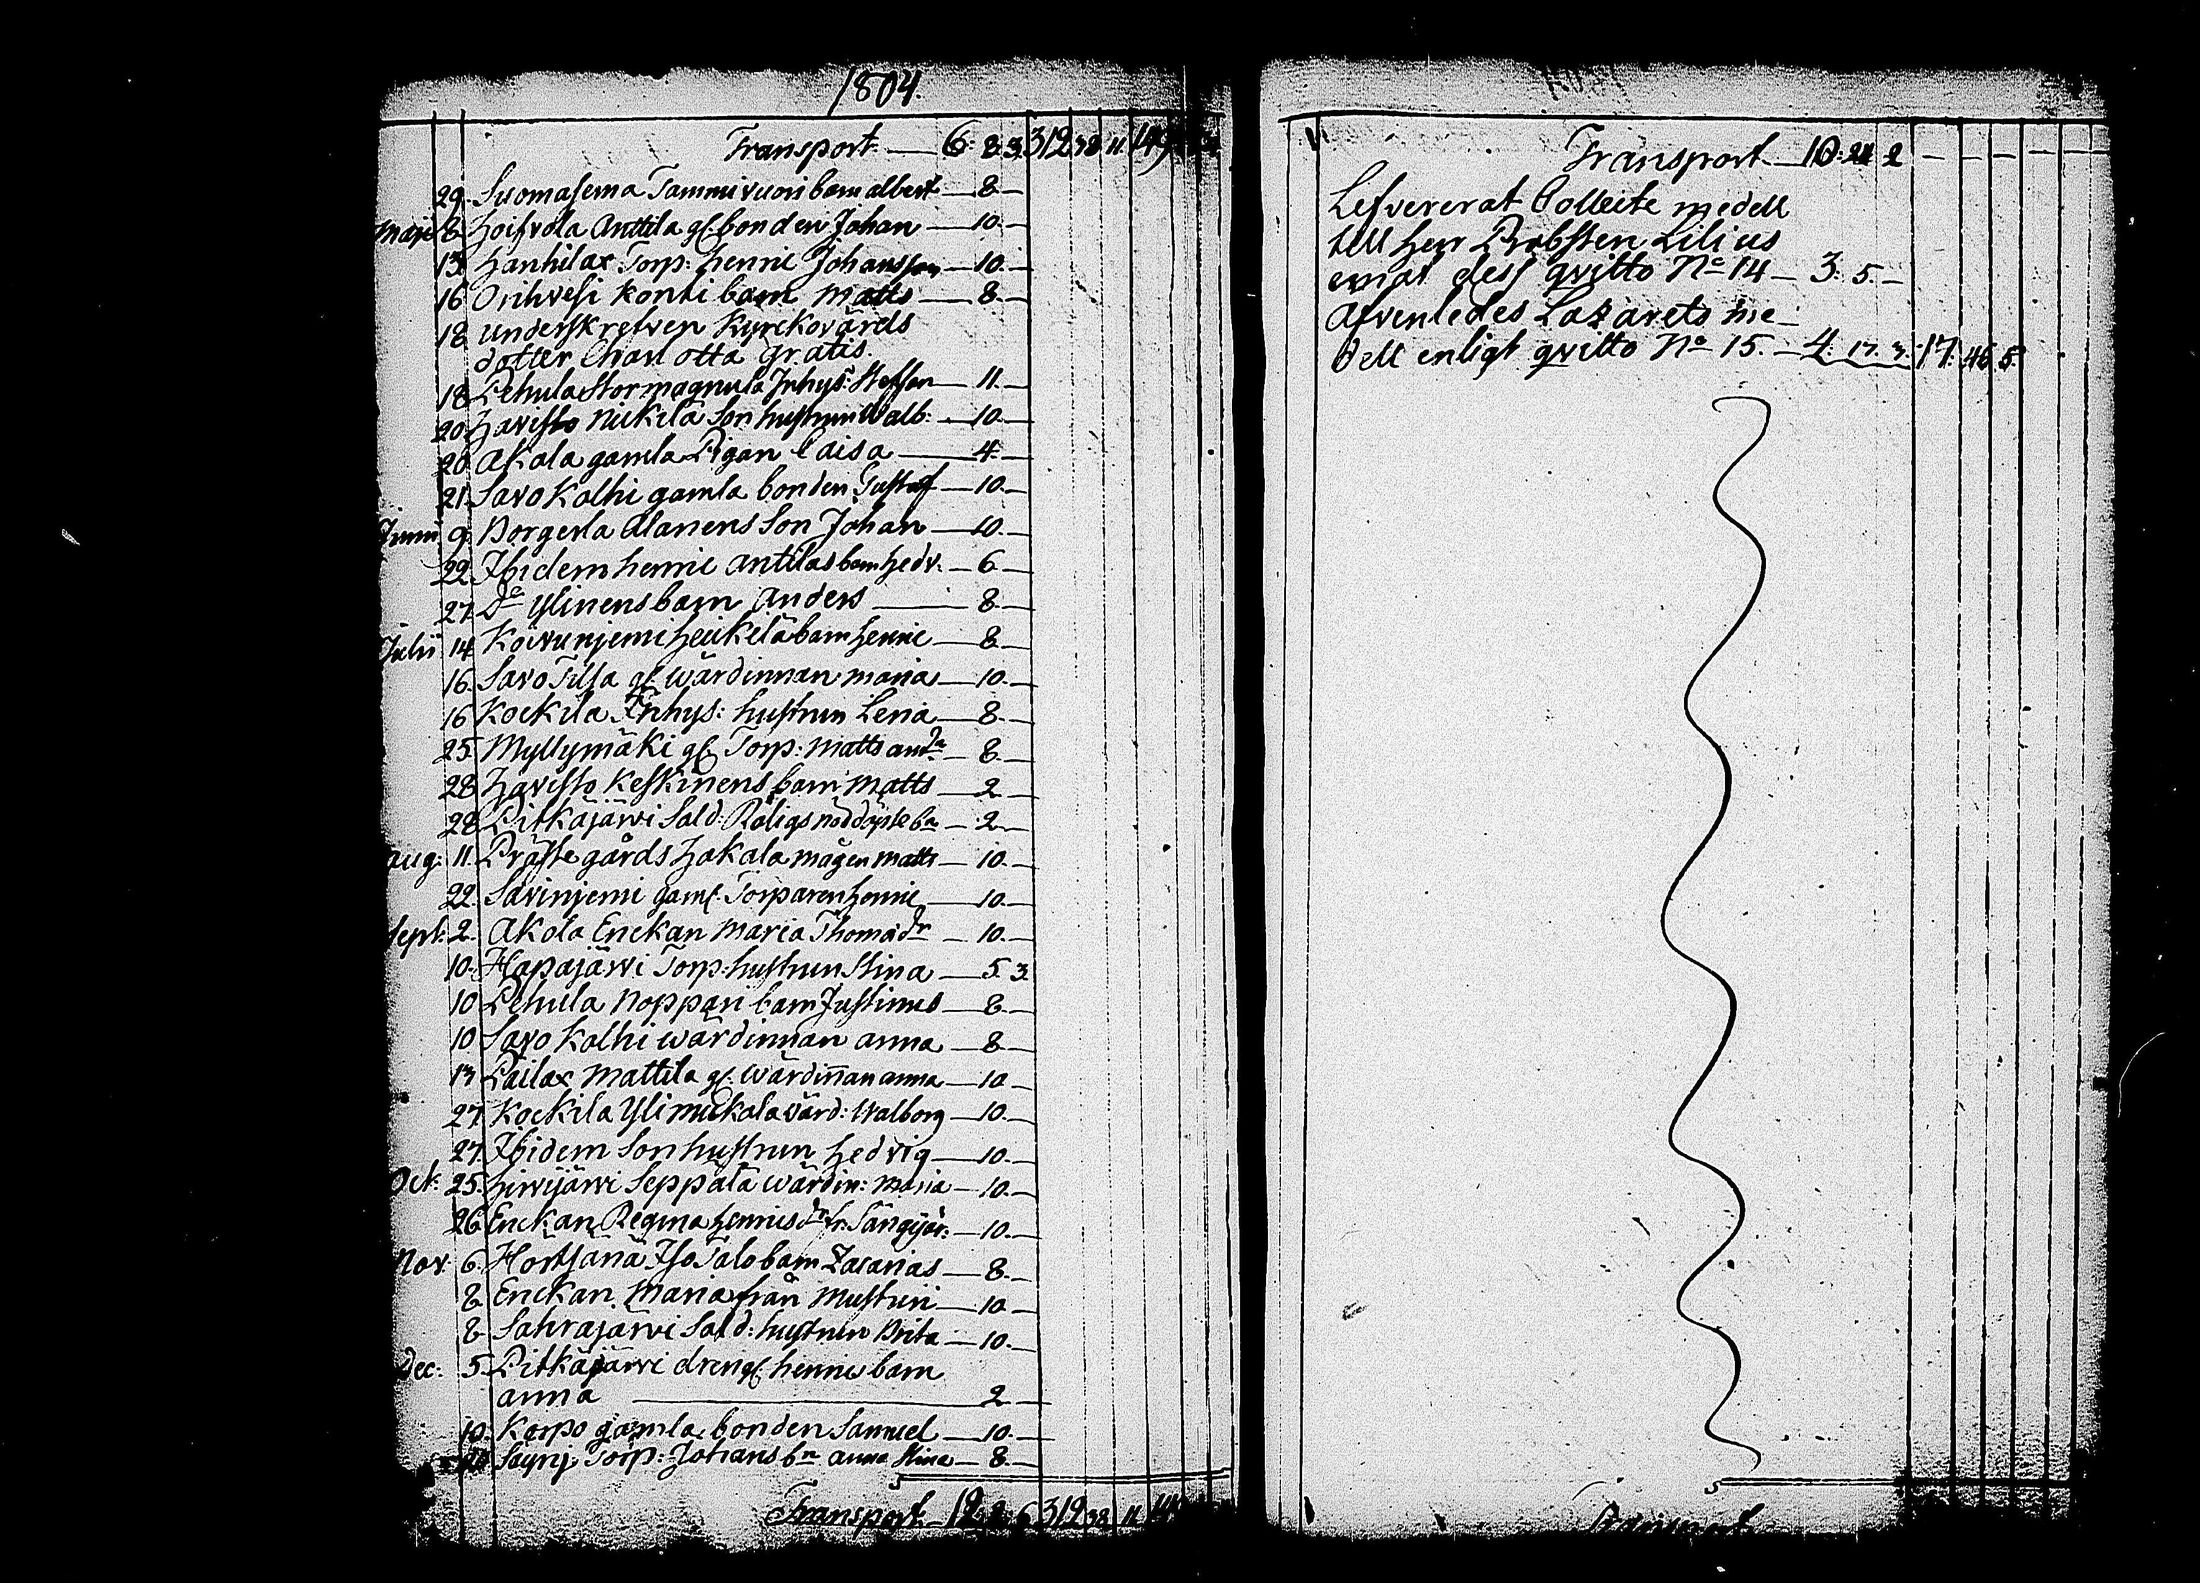 1804.
Transport — 6: 8. 3. 312 38 11
29. Suomasema Tammivuori barn albert — 8 —
Maji 8. Hoifvola Anttila gl. bonden Johan — 10. —
13. Hanhilax Torp: henric Johansson — 10. —
16 Orihvesi Konti barn Matts — 8. —
18 underskrefven Kyrckovärds
dotter Charlotta gratis.
18 Pehula Stormagnula Inhys: Steffan — 11. —
20. Havisto Nickila Son hustrun Walb: — 10. —
20 Akola gamla Pigan Caisa — 4. —
21. Savo Kolhi gamla bonden Gustaf — 10. —
Junii 9. Borgerla Alanens Son Johan — 10. —
22. Ibidem henric antilas barn hedv. — 6 —
27. Do Ylinens barn Anders — 8. —
Julii 14 Koivunjemi heickelä barn henric — 8. —
16. Savo Tilsa gl. wärdinnan maria — 10. —
16 Kockila Inhys: hustrun Lena — 8. —
25. Myllymäki gl. Torp: matts — 8. —
28 Havisto Keskinens barn matts — 2. —
28. Pitkäjärvi Sald: Röligs nöddöpte bn — 2. —
aug: 11. Prästegårds Hakala mågen matts — 10. —
22. Savinjemi gaml. Torparen henric — 10. —
Sept: 2. Akola Enckan Maria Thomadr — 10. —
10. Hapajärvi Torp: hustrun Stina — 5. 3.
10 Pehula Noppari barn Justinus — 8. —
10 Savo Kolhi wärdinnan anna — 8. —
13 Pailax Mattila gl. wärdinnan anna — 10 —
27. Kockila Yli nuckala värd: Walborg — 10. —
27. Ibidem Sonhustrun Hedvig — 10. —
Oct: 25. Hirvijärvi Seppälä wärdin: maria — 10. —
26 Enckan Regina henricsdr fr. Sängijär: — 10. —
Nov: 6. Hortsanä Iso Talo barn Zacarias — 8. —
8 Enckan Maria från Musturi — 10 —
8 Sahrajärvi Sald: hustrun Brita — 10. —
Dec: 5. Pitkäjärvi drengl. henrics barn
anna — 2. —
10. Korpo gamla bonden Samuel — 10. —
Savinj Torp: Johans bn anna Stina — 8. —
Transport — 12. 2. 6 312 38. 11
Transport — 10: 21 2 — — — — —
Lefvererat Collecte medell
till herr Probsten Lilius
emot dess qvitto No 14 — 3. 5. —
Äfvenledes Lazarets me-
dell enligt qvitto No 15. — 4. 17. 3. 17. 46 5.
Transport